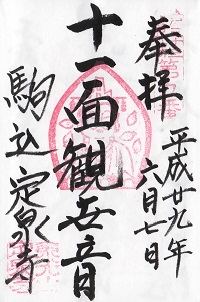 奉拝
平成廿九年
六月七日
十一面観世音
駒込定泉寺